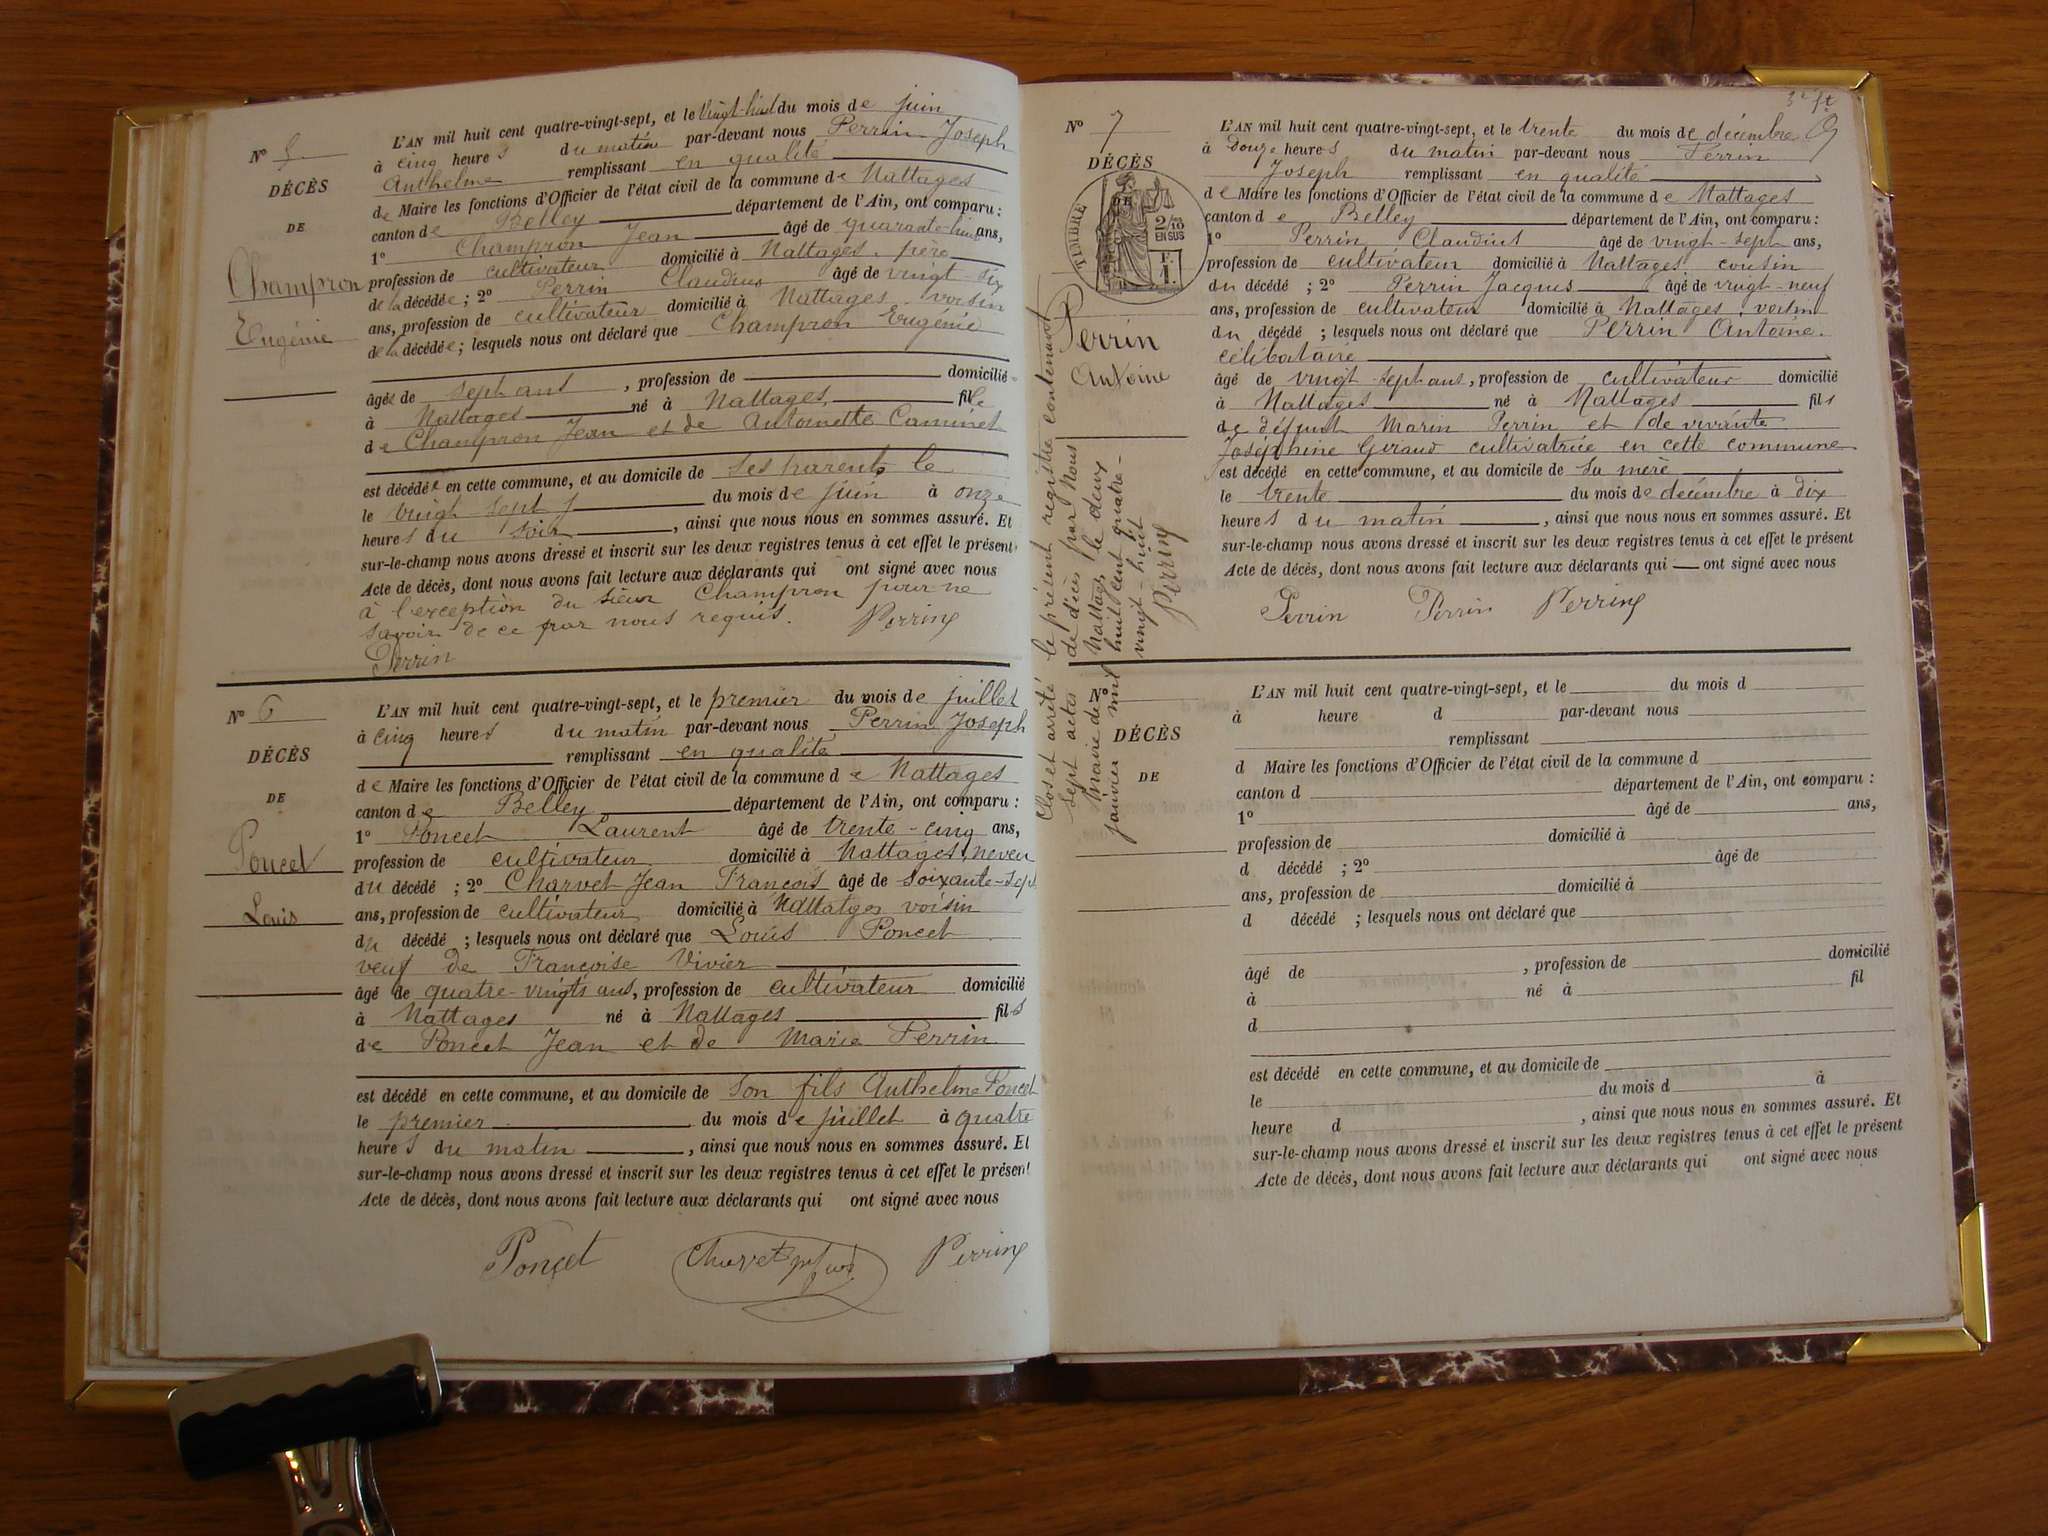 N° 5
DÉCÈS
DE
Champron
Eugénie
L'AN mil huit cent quatre-vingt-sept, et le vingt-huit du mois de juin
à cinq heures du matin par-devant nous Perrin Joseph
Anthelme remplissant en qualité
de Maire les fonctions d'Officier de l'état civil de la commune de Nattages
canton de Belley département de l'Ain, ont comparu :
1° Champron Jean âgé de quarante-huit ans,
profession de cultivateur domicilié à Nattages, père
de la décédée ; 2° Perrin Claudius âgé de vingt-six
ans, profession de cultivateur domicilié à Nattages voisin
de la décédée ; lesquels nous ont déclaré que Champron Eugénie
âgée de sept ans , profession de domicilié
à Nattages né à Nattages fille
de Champron Jean et de Antoinette Caminet
est décédée en cette commune, et au domicile de ses parents le
le vingt sept du mois de juin à onze
heures du soir , ainsi que nous nous en sommes assuré. Et
sur-le-champ nous avons dressé et inscrit sur les deux registres tenus à cet effet le présent
Acte de décès, dont nous avons fait lecture aux déclarants qui ont signé avec nous
à l'exception du sieur Champron pour ne
savoir de ce par nous requis. Perrin
Perrin
N° 6
DÉCÈS
DE
Poncet
Louis
L'AN mil huit cent quatre-vingt-sept, et le premier du mois de juillet
à cinq heures du matin par-devant nous Perrin Joseph
remplissant en qualité
de Maire les fonctions d'Officier de l'état civil de la commune de Nattages
canton de Belley département de l'Ain, ont comparu :
1° Poncet Laurent âgé de trente-cinq ans,
profession de cultivateur domicilié à Nattages, neveu
du décédé ; 2° Charvet Jean François âgé de soixante-sept
ans, profession de cultivateur domicilié à Nattatges voisin
du décédé ; lesquels nous ont déclaré que Louis Poncet
veuf de Françoise Vivier
âgé de quatre-vingts ans, profession de cultivateur domicilié
à Nattages né à Nattages fils
de Poncet Jean et de Marie Perrin
est décédé en cette commune, et au domicile de son fils Anthelme Poncet
le premier du mois de juillet à quatre
heures du matin , ainsi que nous nous en sommes assuré. Et
sur-le-champ nous avons dressé et inscrit sur les deux registres tenus à cet effet le présent
Acte de décès, dont nous avons fait lecture aux déclarants qui ont signé avec nous
Poncet Charvet Perrin
N° 7
DÉCÈS
TIMBRE
2/10
EN SUS
1 F.
Perrin
Antoine
L'AN mil huit cent quatre-vingt-sept, et le trente du mois de décembre
à douze heures du matin par-devant nous Perrin
Joseph remplissant en qualité
de Maire les fonctions d'Officier de l'état civil de la commune de Nattages
canton de Belley département de l'Ain, ont comparu :
1° Perrin Claudius âgé de vingt-sept ans,
profession de cultivateur domicilié à Nattages cousin
du décédé ; 2° Perrin Jacques âgé de vingt-neuf
ans, profession de cultivateur domicilié à Nattages, voisin
du décédé ; lesquels nous ont déclaré que Perrin Antoine.
célibataire
âgé de vingt-sept ans, profession de cultivateur domicilié
à Nattages né à Nattages fils
de défunt Marin Perrin et de vivante
Joséphine Giraud cultivatrice en cette commune
est décédé en cette commune, et au domicile de sa mère
le trente du mois de décembre à dix
heures du matin , ainsi que nous nous en sommes assuré. Et
sur-le-champ nous avons dressé et inscrit sur les deux registres tenus à cet effet le présent
Acte de décès, dont nous avons fait lecture aux déclarants qui ont signé avec nous
Perrin Perrin Perrin
Clos et arrêté le présent registre contenant
sept actes de décès par Nous
Maire de Nattages le deux
janvier mil huit cent quatre-
vingt-huit
Perrin
N°
DÉCÈS
DE
L'AN mil huit cent quatre-vingt-sept, et le du mois d
à heure d par-devant nous
remplissant
d Maire les fonctions d'Officier de l'état civil de la commune d
canton d département de l'Ain, ont comparu :
1° âgé de ans,
profession de domicilié à
d décédé ; 2° âgé de
ans, profession de domicilié à
d décédé ; lesquels nous ont déclaré que
âgé de , profession de domicilié
à né à fil
d
est décédé en cette commune, et au domicile de
le du mois d à
heure d , ainsi que nous nous en sommes assuré. Et
sur-le-champ nous avons dressé et inscrit sur les deux registres tenus à cet effet le présent
Acte de décès, dont nous avons fait lecture aux déclarants qui ont signé avec nous